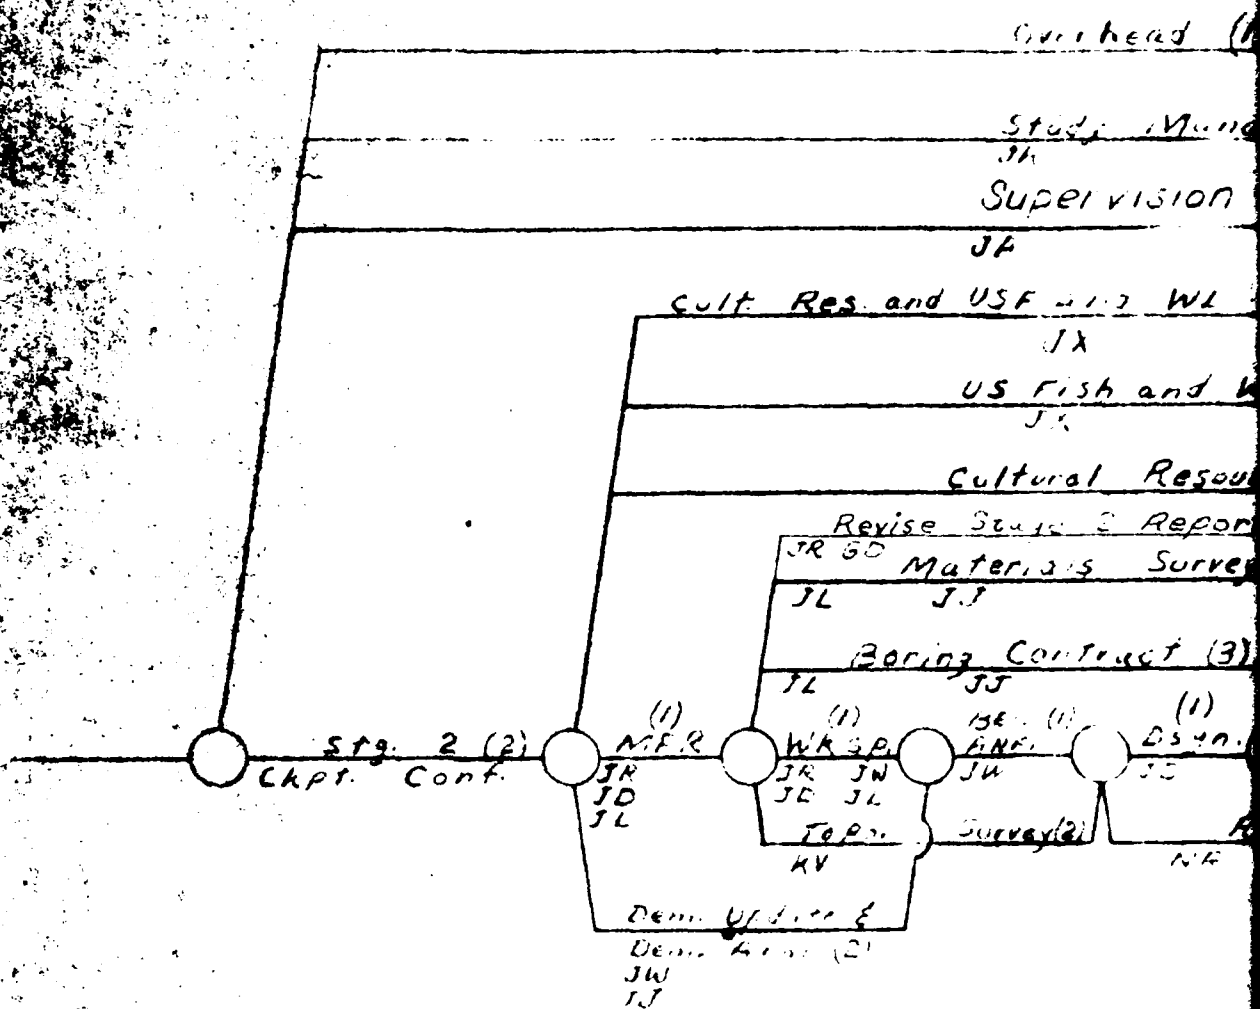 Overhead (1
Study Mana
Supervision
JA
Cult. Res. and USF WL
JX
US Fish and W
JX
Cultural Resou
Revise Stage 2 Repor
JR GD
Materials Survey
JL JJ
Boring Contract (3)
JL JJ
Stg. 2 (2)
Ckpt. Conf.
(1)
MFR
JR
JD
JL
(1)
WKSP.
JR JW
JD JL
(1)
JW
(1)
Dsgn.
Topo. Survey (2)
KV
Dem. Update &
Dem. (2)
JW
IJ